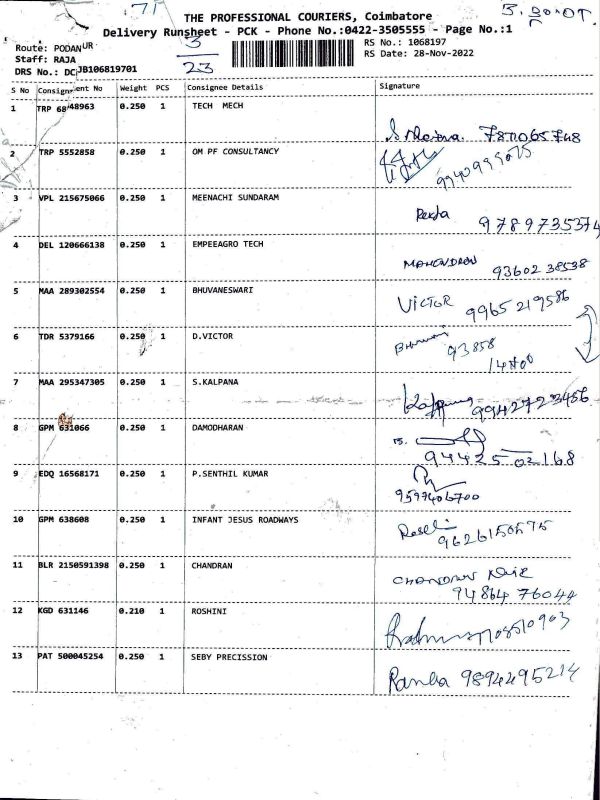 71
3.30.0T.
THE PROFESSIONAL COURIERS, Coimbatore
Delivery Runsheet - PCK - Phone No.:0422-3505555 - Page No.:1
Route: PODANUR
3
23
RS No.: 1068197
Staff: RAJA
RS Date: 28-Nov-2022
DRS No.: DC JB106819701
S No Consignment No Weight PCS Consignee Details Signature
1 TRP 68 48963 0.250 1 TECH MECH
2 TRP 5552858 0.250 1 OM PF CONSULTANCY
3 VPL 215675066 0.250 1 MEENACHI SUNDARAM
Rekha
9789735374
4 DEL 120666138 0.250 1 EMPEEAGRO TECH
MAHENDRAN 93602 38538
5 MAA 289302554 0.250 1 BHUVANESWARI
VICTOR 9965219586
6 TDR 5379166 0.250 1 D.VICTOR
93858
14400
7 MAA 295347305 0.250 1 S.KALPANA
9942723456
8 GPM 631066 0.250 1 DAMODHARAN
94425 02168
9 EDQ 16568171 0.250 1 P.SENTHIL KUMAR
9597406700
10 GPM 638608 0.250 1 INFANT JESUS ROADWAYS
9626150575
11 BLR 2150591398 0.250 1 CHANDRAN
CHANDRAN NAIR
94864 76044
12 KGD 631146 0.210 1 ROSHINI
13 PAT 500045254 0.250 1 SEBY PRECISSION
9894495214